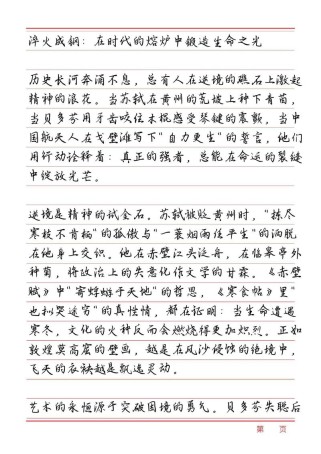 淬火成钢：在时代的熔炉中锻造生命之光
历史长河奔涌不息，总有人在逆境的礁石上激起
精神的浪花。当苏轼在黄州的荒坡上种下青苗，
当贝多芬用牙齿咬住木棍感受琴键的震颤，当中
国航天人在戈壁滩写下"自力更生"的誓言，他们
用行动诠释着：真正的强者，总能在命运的裂缝
中绽放光芒。
逆境是精神的试金石。苏轼被贬黄州时，"拣尽
寒枝不肯栖"的孤傲与"一蓑烟雨任平生"的洒脱
在他身上交织。他在赤壁江头泛舟，在临皋亭外
种菊，将政治上的失意化作文学的甘霖。《赤壁
赋》中"寄蜉蝣于天地"的哲思，《寒食帖》里"
也拟哭途穷"的真性情，都在证明：当生命遭遇
寒冬，文化的火种反而会燃烧得更加炽烈。正如
敦煌莫高窟的壁画，越是在风沙侵蚀的绝境中，
飞天的衣袂越是飘逸灵动。
艺术的永恒源于突破困境的勇气。贝多芬失聪后
第 页